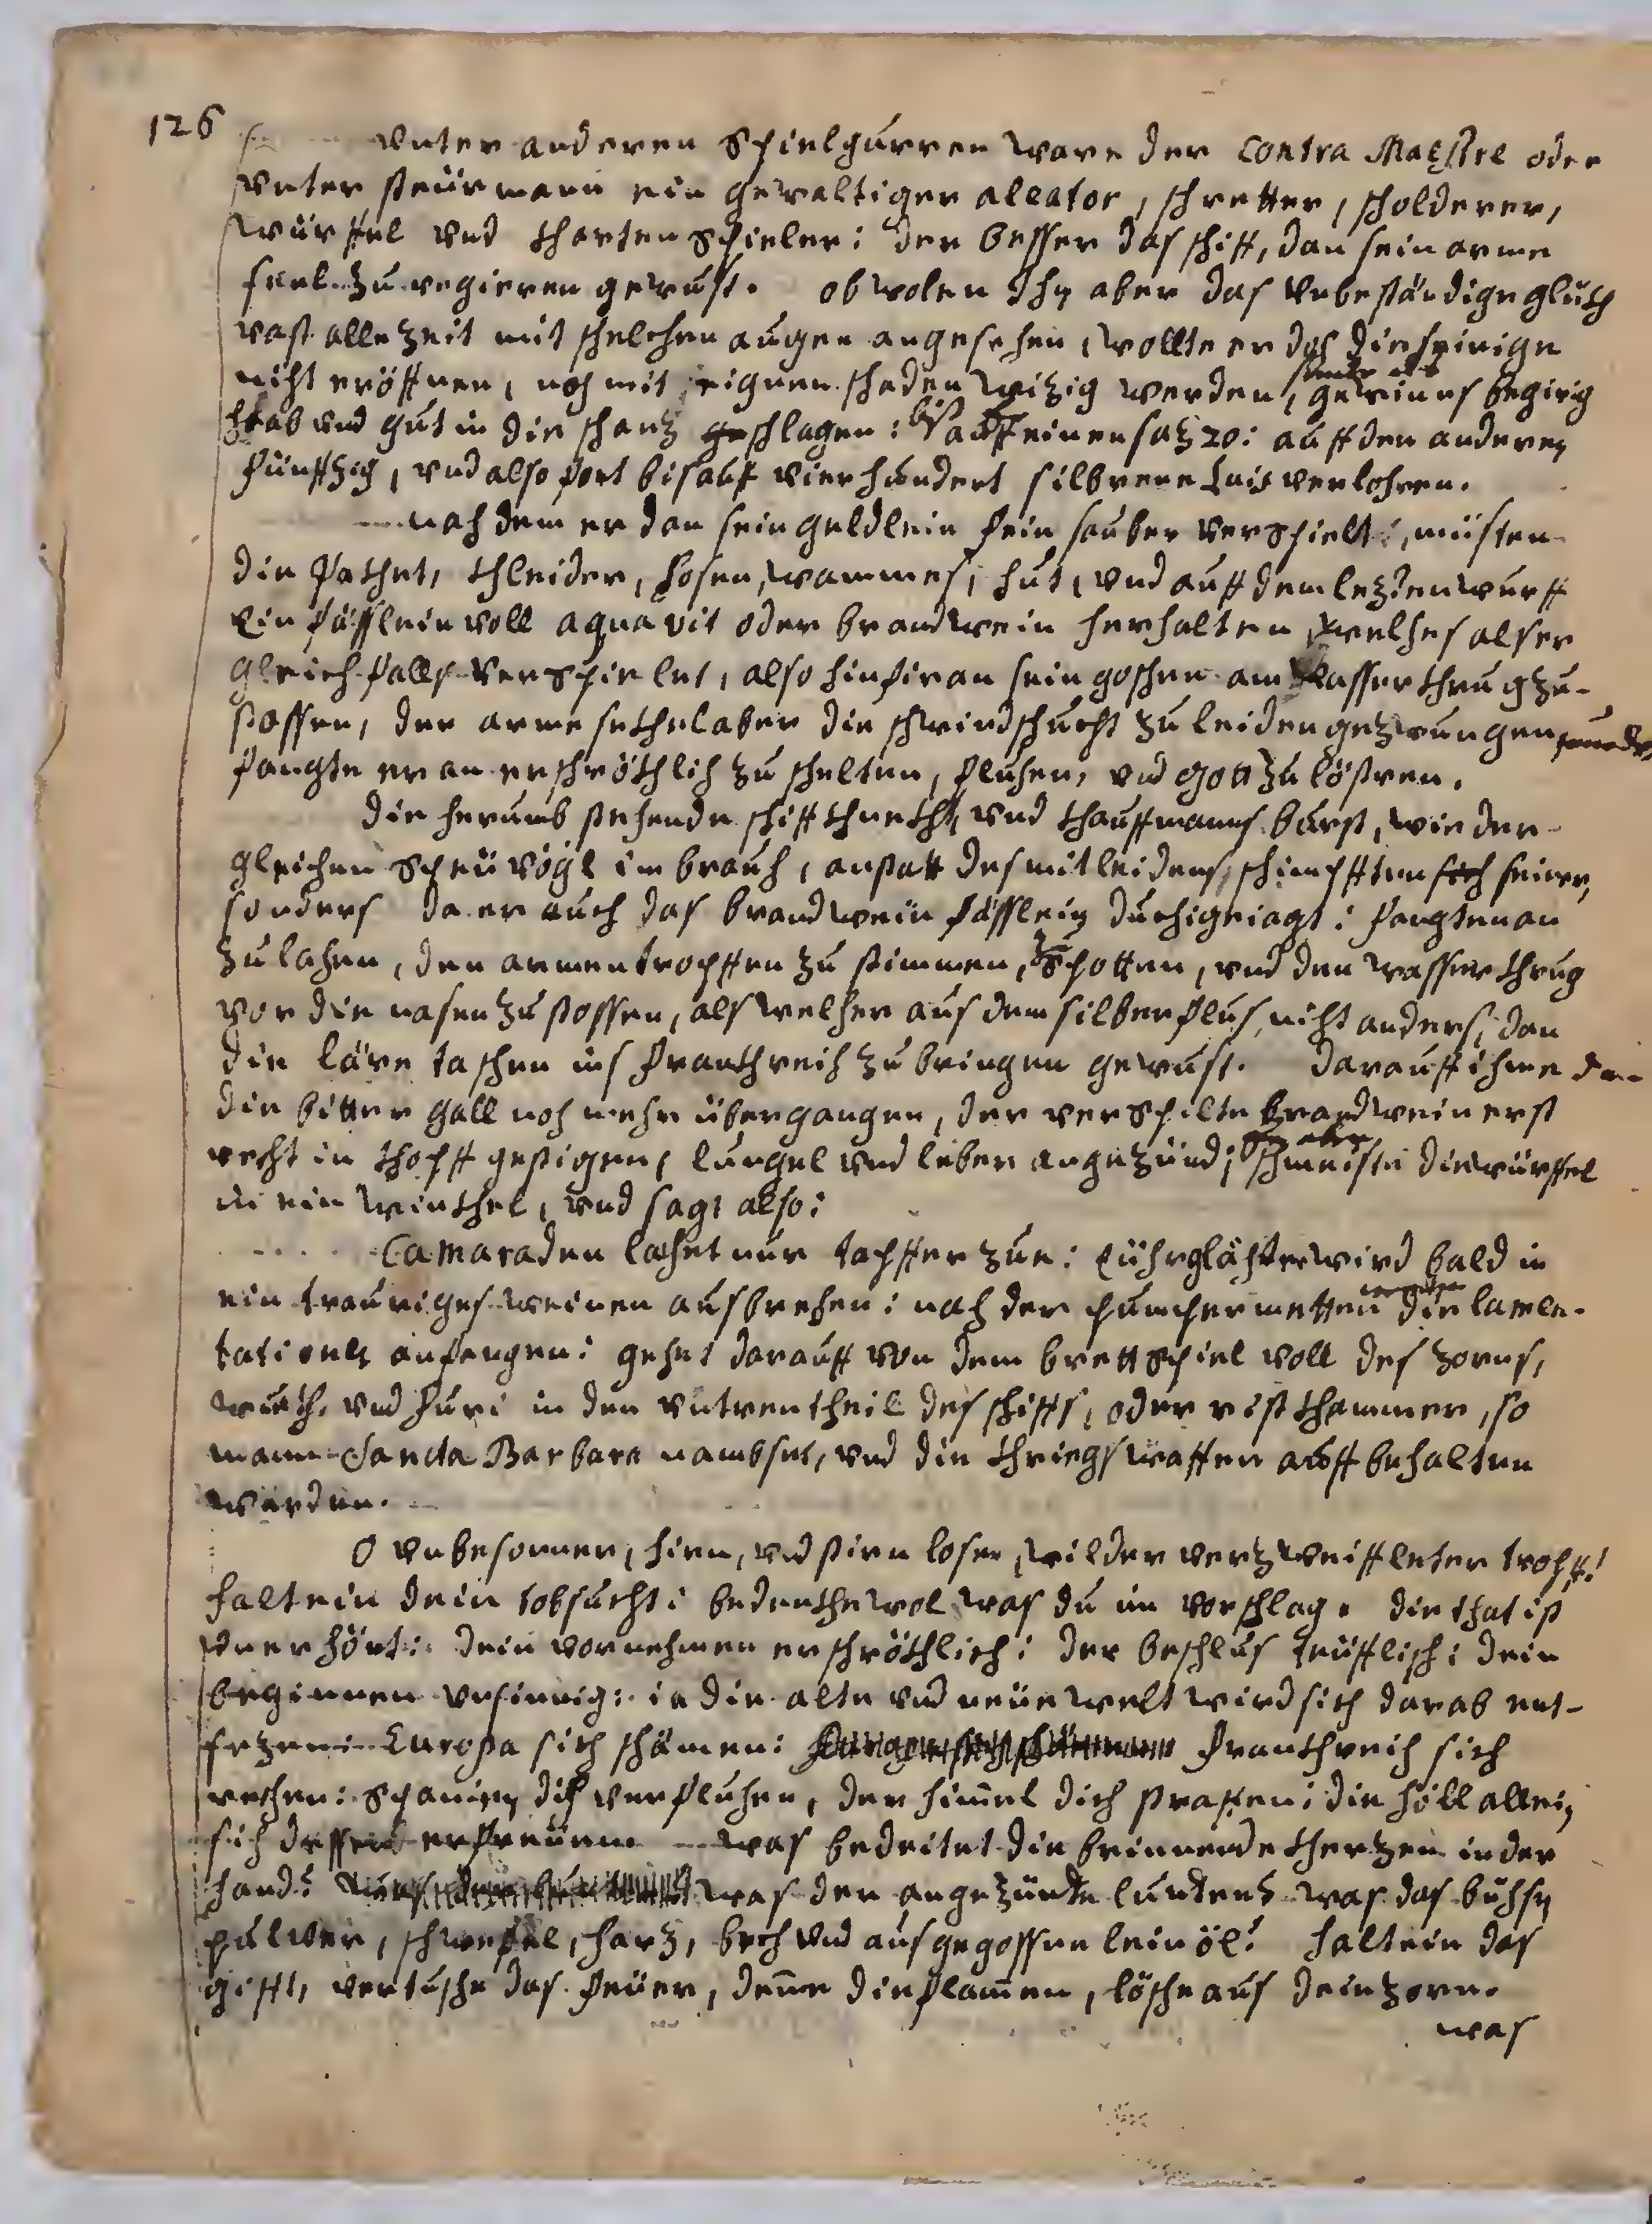 126
Vnter anderen Spielgurren ware der Contra Maestre oder
vnter steürmann ein gewaltiger aleator, schretter, scholderer,
würffel vnd khartenspieler: der besser das schiff, dan sein arme
seel zu regieren gewust. obwolen Ihn aber das vnbeständige glükh
vast allezeit mit schelchen augen angesehen, wollte er doch die seinige
nicht eröffnen, noch mit eignen schaden wizig werden, gewinnes begirig
haab vnd gut in die schanz geschlagen: biss auff einen saz 20: auff den anderen
fünffzig, vnd also fort bis auff vierhundert silbrene Luis verlohren.
nach dem er dan sein geldlein fein sauber verspielt, müsten
die pakhet, khleider, hosen, wammes, hut, vnd auff dem lezten wurff
Ein fässlein voll aquavit oder brandwein herhalten, welches als er
gleichfalls verspielet, also hinfiran sein goschen am wasserkhrug zu-
stossen, der arme sekhel aber die schwindsucht zu leiden gezwungen wurde,
fangte er an erschrökhlich zu schelten, fluchen, vnd gott zu lästren.
die herumb stehende schiffkhnecht, vnd khauffmanns bursch, wie der
gleichen Speüvögl im brauch, anstatt des mitleidens, schimpfften sich seiner,
sonders da er auch das brandwein fässlein durchgeiagt: fangten an
zu lachen, den armen tropffen zu stimmen, zu spotten, vnd den wasserkhrug
vor die nasen zu stossen, als welcher aus dem silberflus nicht anders, dan
die läre taschen ins frankhreich zu bringen gewust. darauff ihme dan
die bittere gall noch mehr übergangen, der verspilte brandwein erst
recht in khopff gestigen, lungel vnd leber angezünd; schmeiste die würffel
in ein winkhel, vnd sagt also:
Camaraden lachet nur tapffer zue: Eühr glächter wird bald in
ein trauriges weinen ausbrechen: nach der pumpermetten die lamen-
tationen anfangen: gehet darauff von dem brettspiel voll des zorns,
wueth, vnd furi in den vntren theil des schiffs, oder rist khammer, so
mann Sancta Barbara nambset, vnd die khriegswaffen auff behalten
werden.
O vnbesonner, hirn, vnd stirn loser, wilder verzweiffleter tropff!
halt ein dein tobsucht: bedenkhe wol was du im vorschlag. die that ist
vnerhört: dein vornehmen erschrökhlich: der beschlus teüfflisch: dein
beginnen vnsinnig: ia die alte vnd neüe welt wird sich darab ent-
sezen: Europa sich schämen: frankhreich sich
rechen: Spanien dich verfluchen, der himel dich straffen: die höll allein
sich dessen erfreüen. was bedeitet die brinnende kherzen in der
hand? was der angezünte lunten? was das büchsen
pulver, schwefel, harz, bech vnd ausgegossene leinöl? halt ein das
gifft, vertusche das feüer, deme die flamen, lösche aus dein zorn.
was